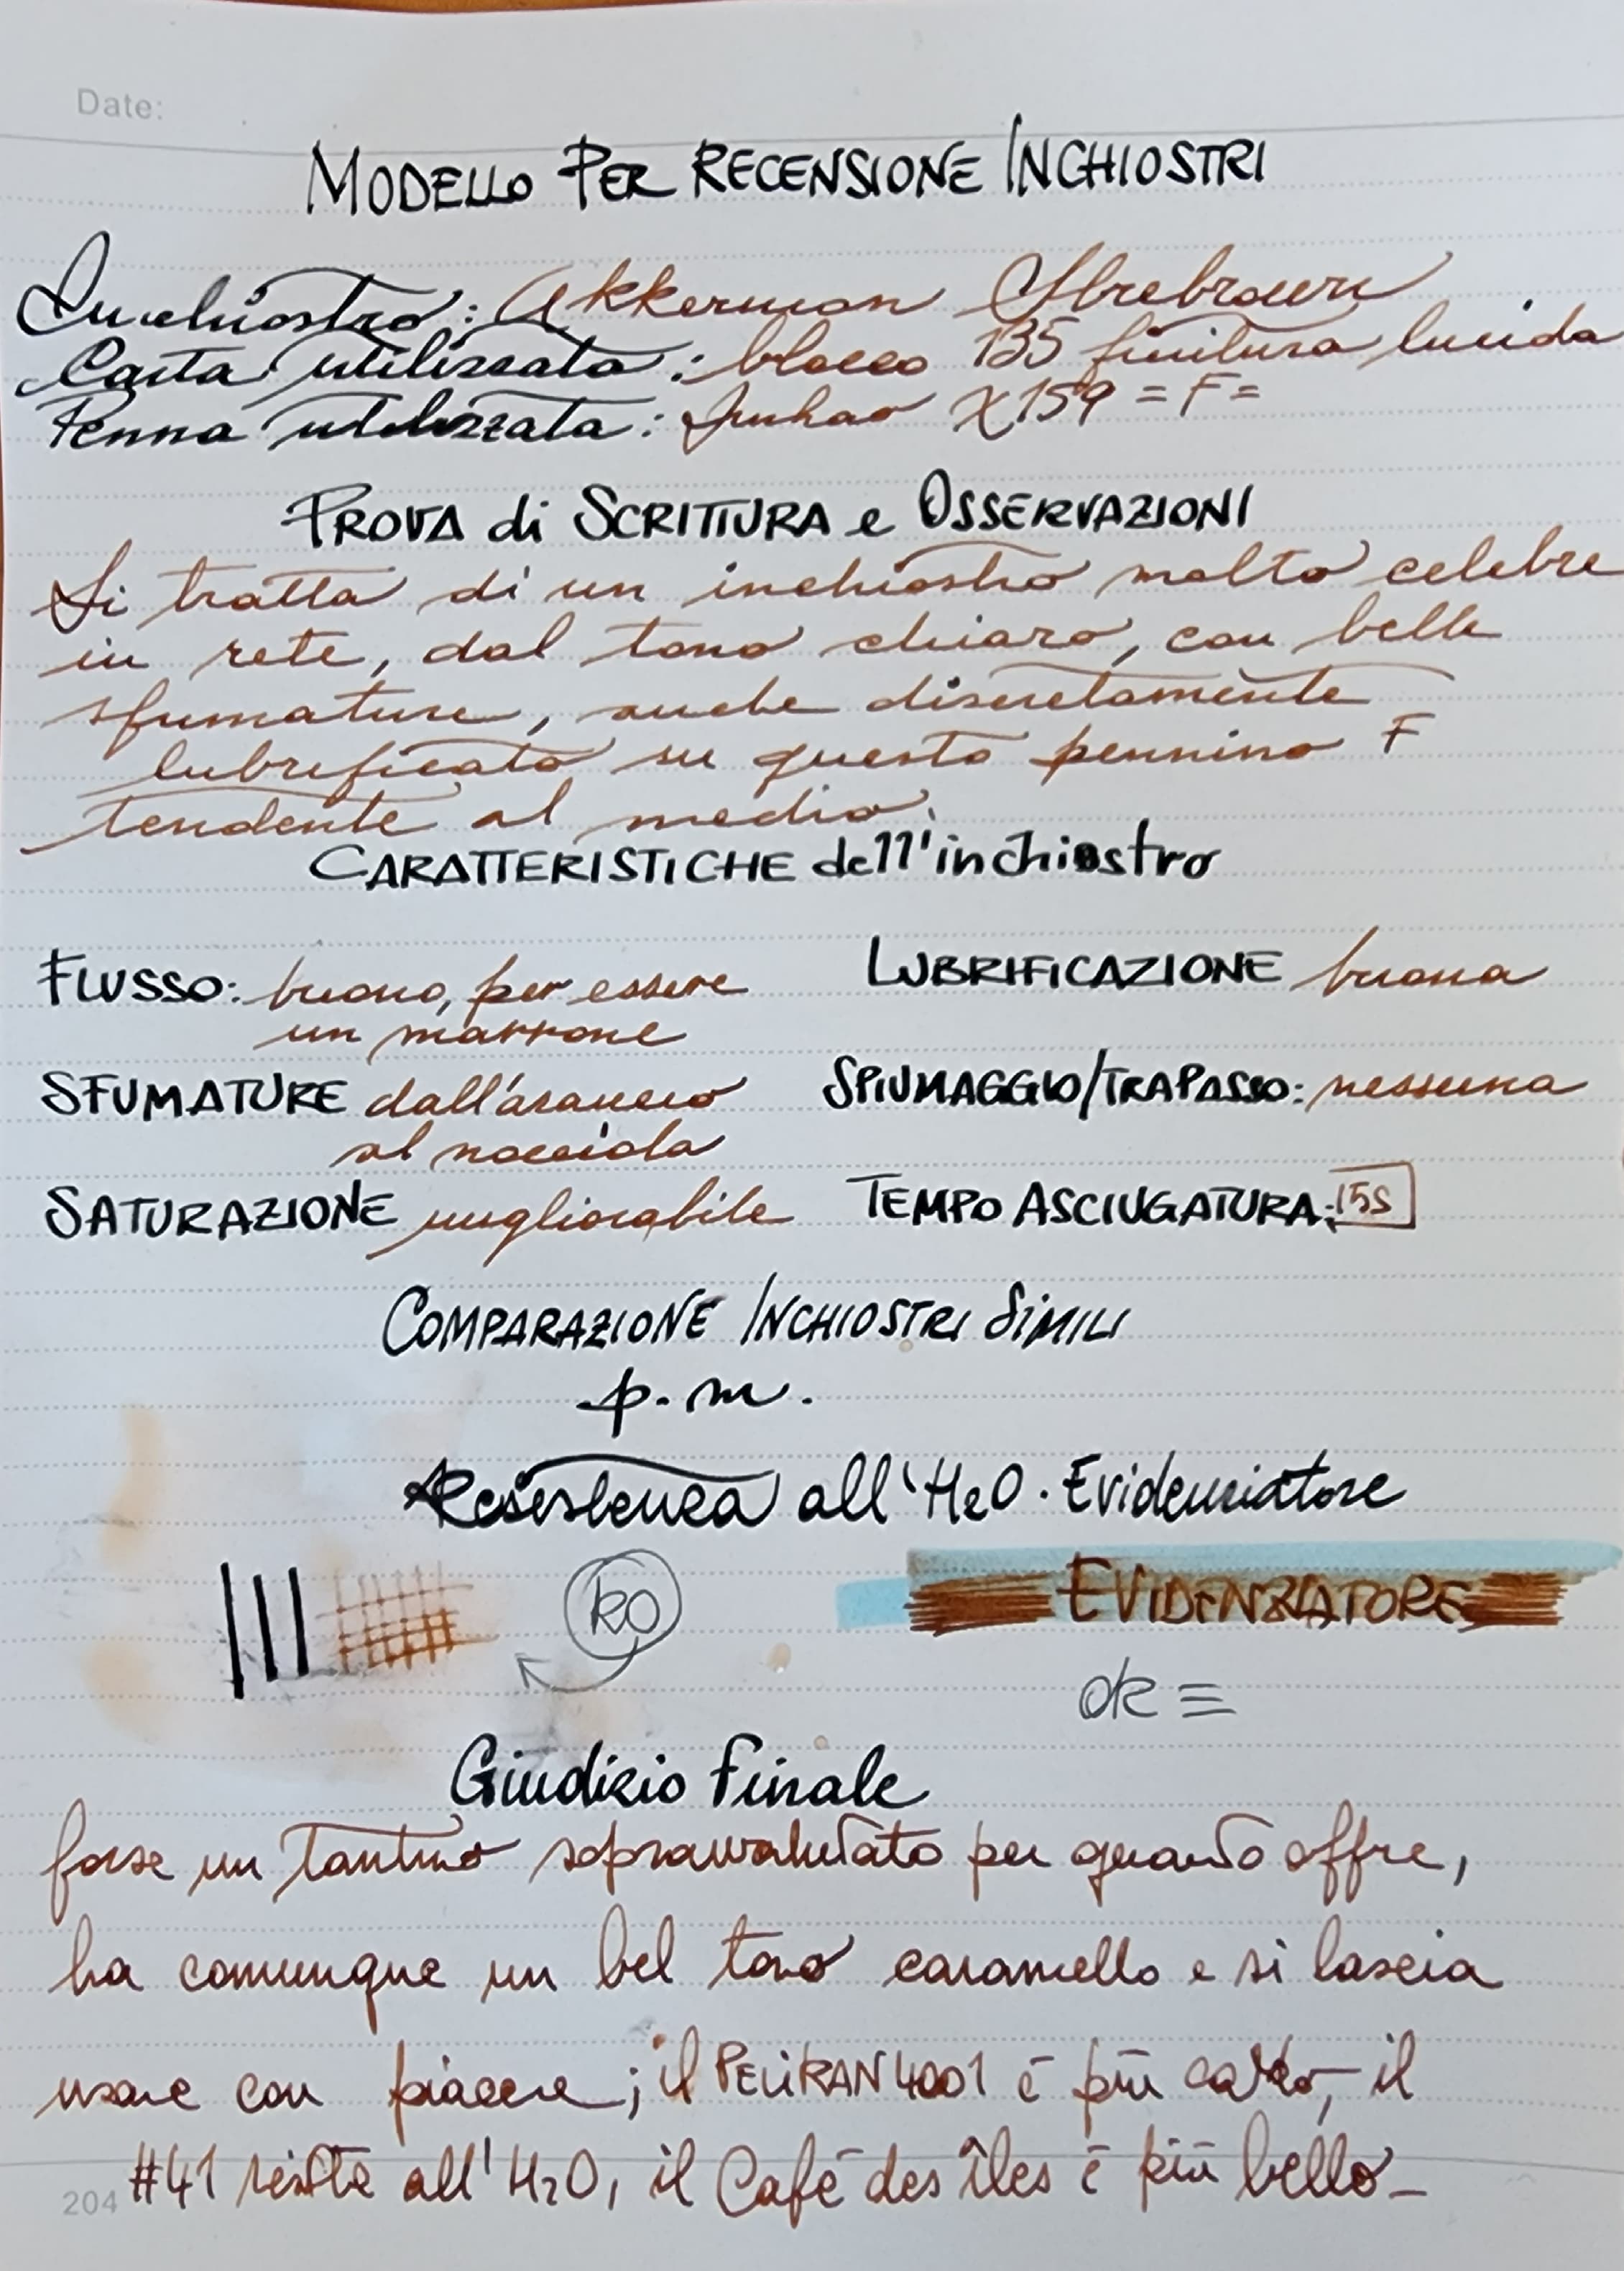 Date:
MODELLO PER RECENSIONE INCHIOSTRI
Inchiostro: Akkerman Sbrebrown
Carta utilizzata: blocco 135 finitura lucida
Penna utilizzata: Jinhao X159 = F =
PROVA di SCRITTURA e OSSERVAZIONI
Si tratta di un inchiostro molto celebre
in rete, dal tono chiaro, con belle
sfumature, anche discretamente
lubrificato su questo pennino F
tendente al medio.
CARATTERISTICHE dell'inchiostro
FLUSSO: buono, per essere
un marrone
LUBRIFICAZIONE buona
SFUMATURE dall'arancio
al nocciola
SPIUMAGGIO/TRAPASSO: nessuna
SATURAZIONE migliorabile
TEMPO ASCIUGATURA: 15s
COMPARAZIONE INCHIOSTRI SIMILI
p.m.
Resistenza all'H2O · Evidenziatore
KO
EVIDENZIATORE
OK =
Giudizio Finale
forse un tantino sopravvalutato per quanto offre,
ha comunque un bel tono caramello e si lascia
usare con piacere; il PELIKAN 4001 è più caldo, il
#41 resiste all'H2O, il Café des îles è più bello_
204